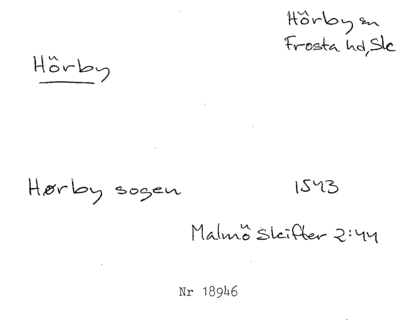 Hörby sn
Frosta hd, Sk
Hörby
Hørby sogen 1543
Malmö Skifter 2:44
Nr 18946